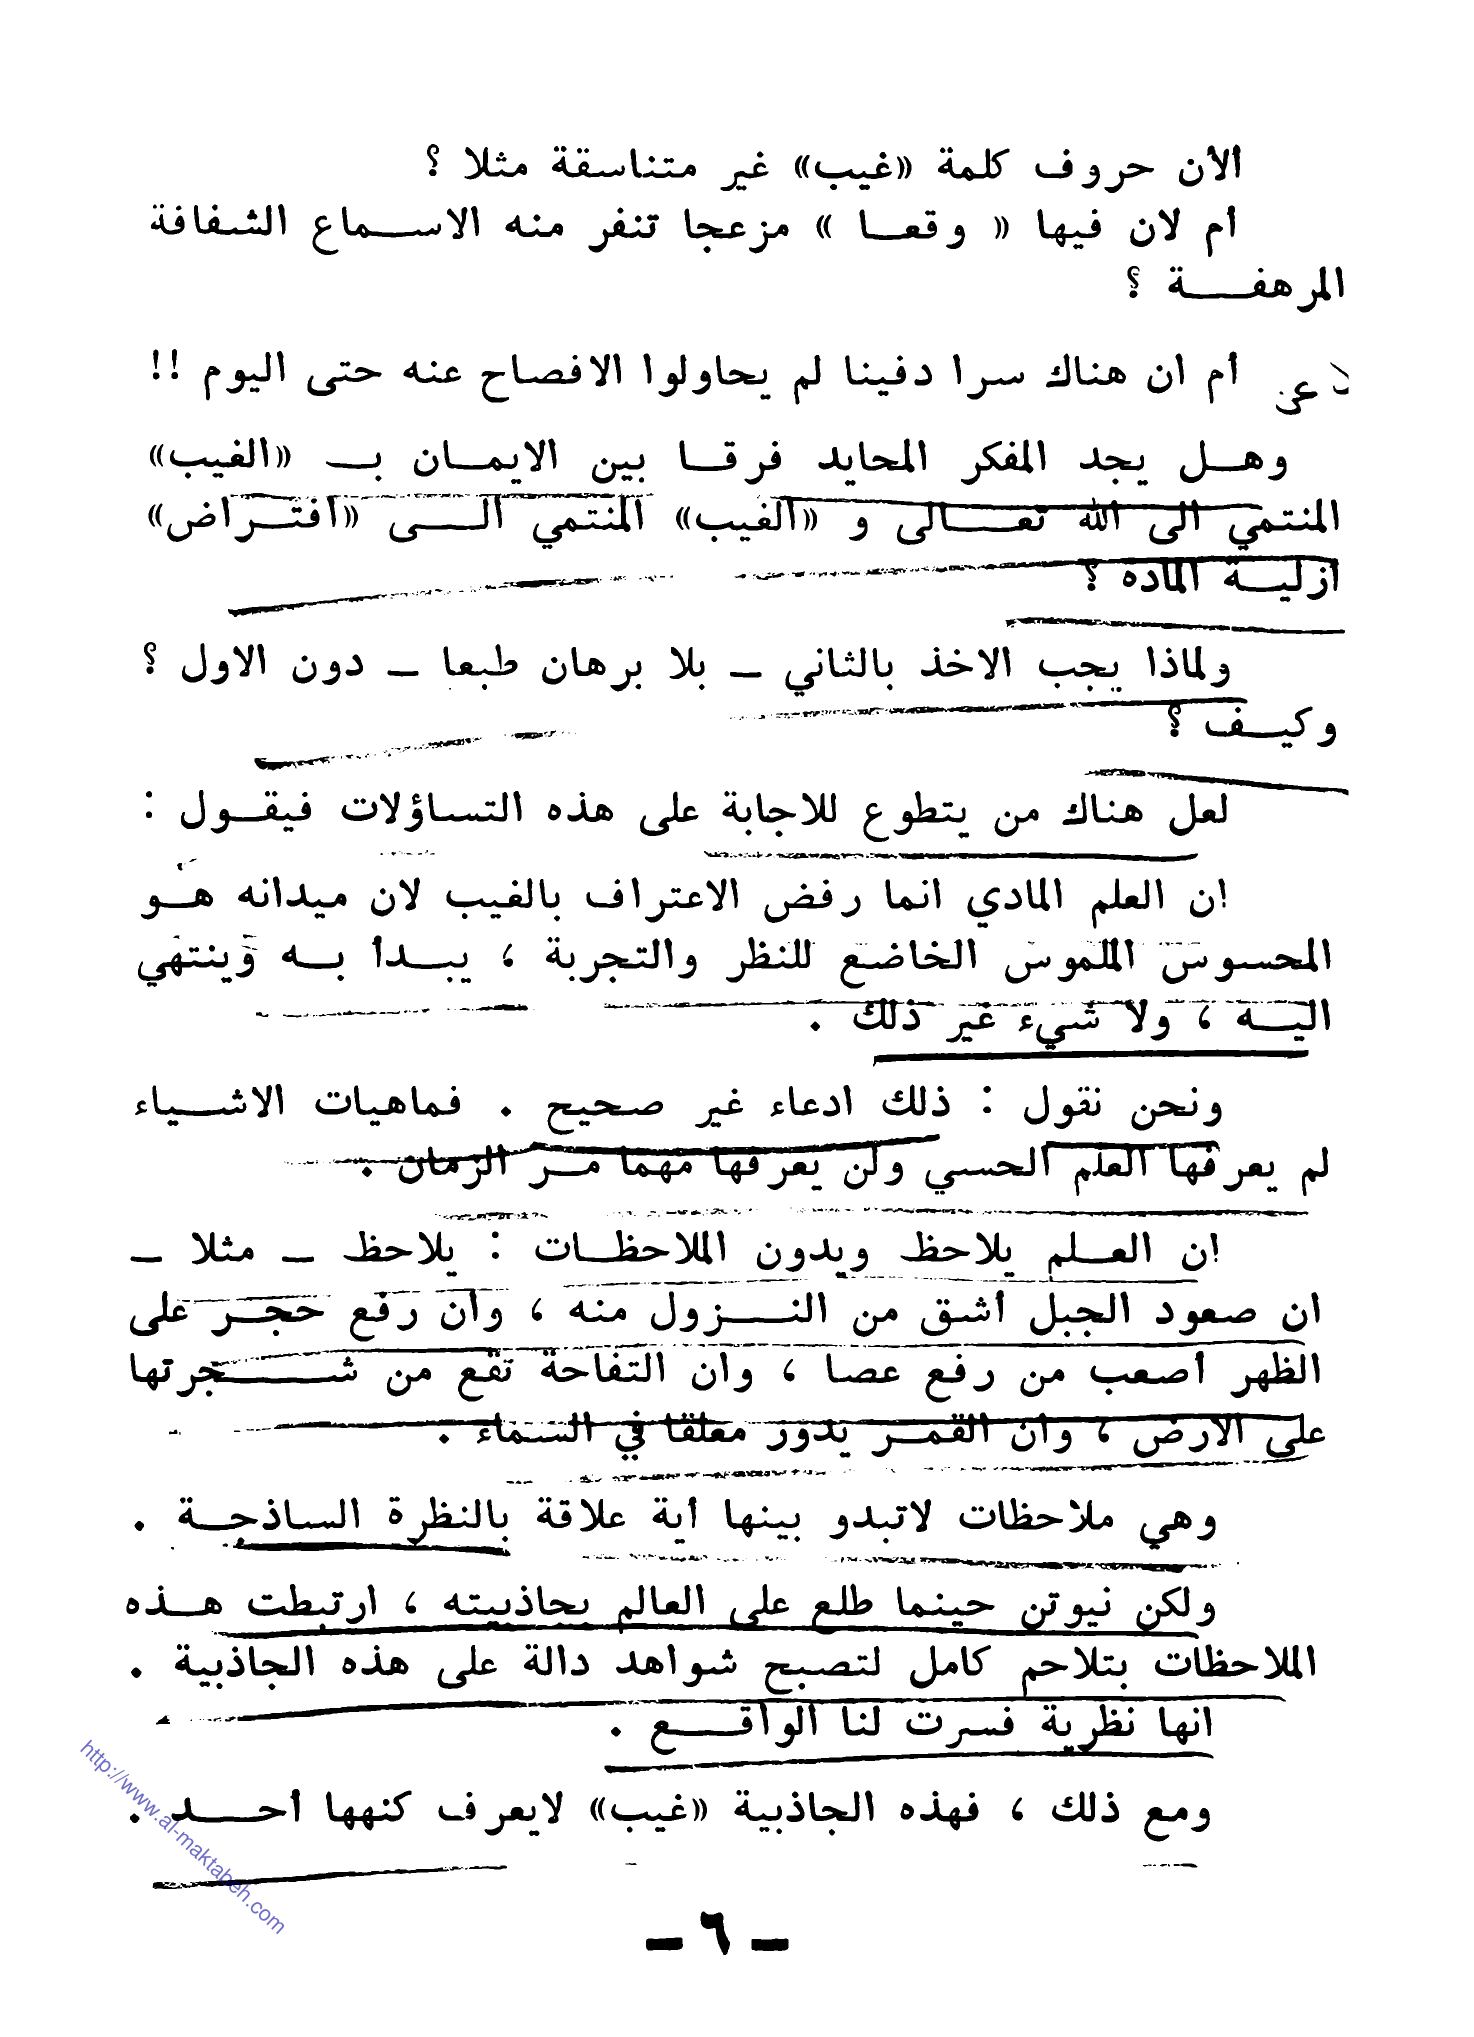 ألأن حروف كلمة «غيب» غير متناسقة مثلا ؟
أم لان فيها « وقعـا » مزعجا تنفر منه الاسـماع الشفافة
المرهفـة ؟
أم ان هناك سرا دفينا لم يحاولوا الافصاح عنه حتى اليوم !!
وهـل يجد المفكر المحايد فرقـا بين الايمـان بـ «الغيب»
المنتمي الى الله تعـالى و «الغيب» المنتمي الـى «افتـراض»
أزليـة المادة ؟
ولماذا يجب الاخذ بالثاني ــ بلا برهان طبعا ــ دون الاول ؟
وكيـف ؟
لعل هناك من يتطوع للاجابة على هذه التساؤلات فيقـول :
ان العلم المادي انما رفض الاعتراف بالغيب لان ميدانه هـو
المحسوس الملموس الخاضع للنظر والتجربة ، يبـدأ بـه وينتهي
اليـه ، ولا شيء غير ذلك .
ونحن نقول : ذلك ادعاء غير صحيح . فماهيات الاشـياء
لم يعرفها العلم الحسي ولن يعرفها مهما مـر الزمان .
ان العـلم يلاحظ ويدون الملاحظـات : يلاحظ ــ مثلا ــ
ان صعود الجبل أشق من النـزول منه ، وان رفع حجـر على
الظهر أصعب من رفع عصا ، وان التفاحة تقع من شـجرتها
على الارض ، وان القمـر يدور معلقا في السماء .
وهي ملاحظات لاتبدو بينها أية علاقة بالنظرة الساذجـة .
ولكن نيوتن حينما طلع على العالم بجاذبيته ، ارتبطت هـذه
الملاحظات بتلاحم كامل لتصبح شواهد دالة على هذه الجاذبية .
انها نظرية فسرت لنا الواقـع .
ومع ذلك ، فهذه الجاذبية «غيب» لايعرف كنهها أحـد .
http://www.al-maktabeh.com
ــ ٦ ــ